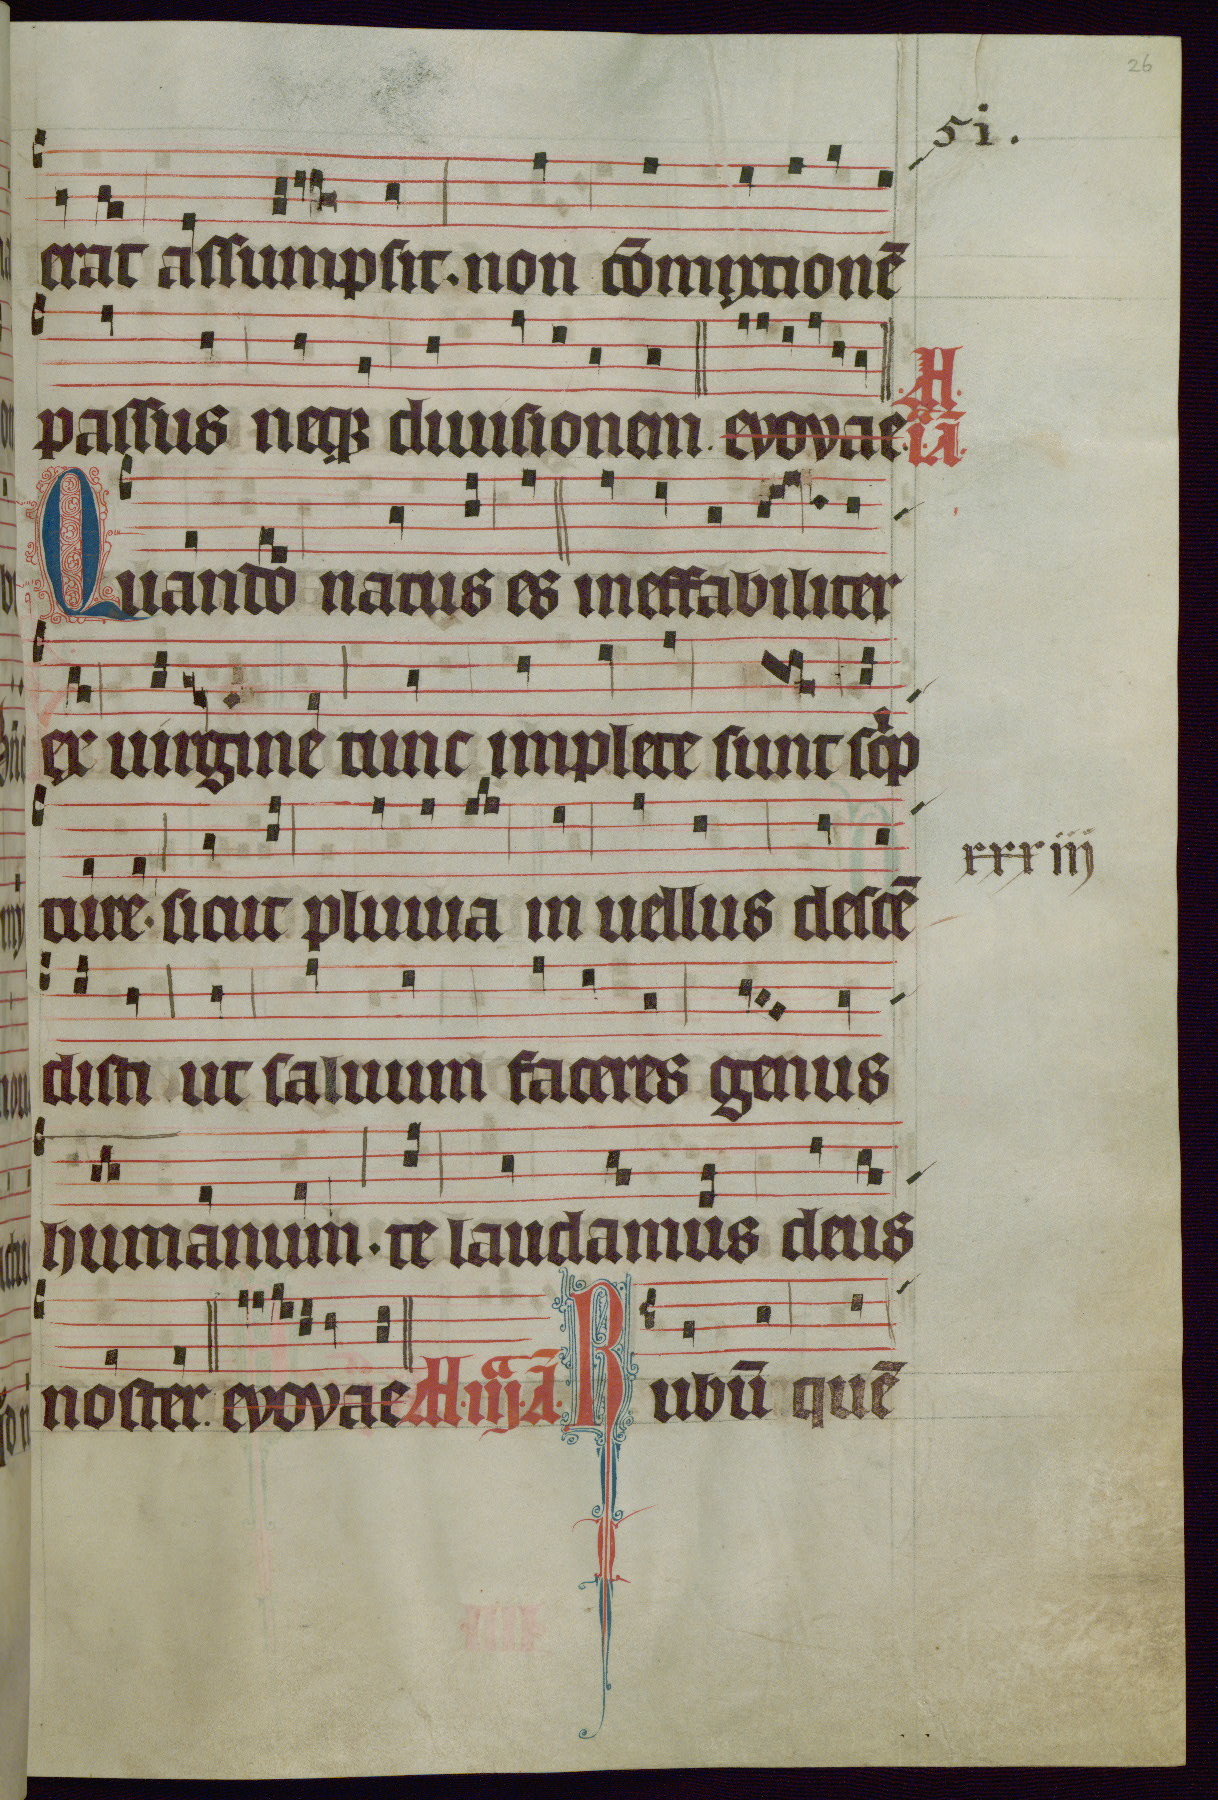 26
51.
erat assumpsit. non cōmyxtionē
passus neq3 diuisionem. evovae. A.
i. A.
Quando natus es ineffabiliter
ex uirgine tunc implete sunt scͥp
ture. sicut pluuia in uellus descē
xxxiij
disti ut saluum faceres genus
humanum. te laudamus deus
noster. evovae A. iij. A. Rubū quē